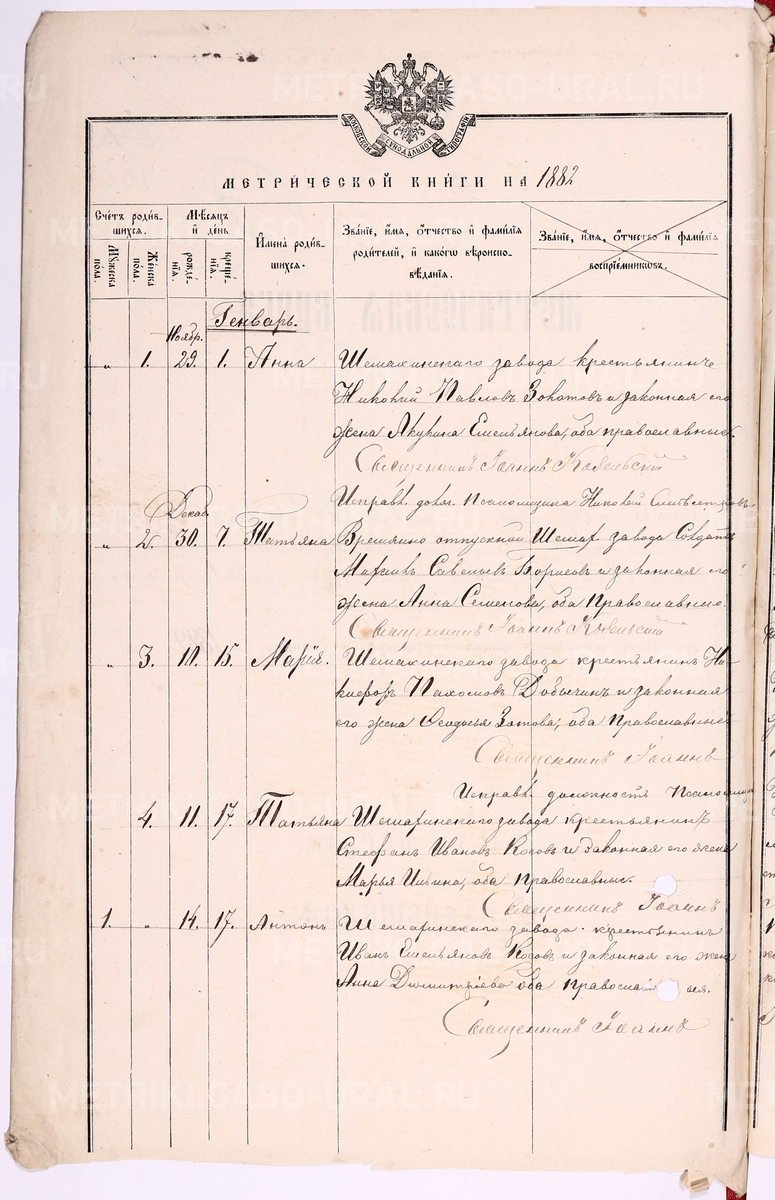 МОСКОВСКОЙ СѴНОДАЛЬНОЙ ТИПОГРАФІИ
МЕТРИ́ЧЕСКОЙ КНИ́ГИ НА 1882
Сче́тъ роди́в-
шихся.
Мꙋжеска по́ла.
Же́нска по́ла.
Мѣ́сяцъ
и҆ де́нь
рожде́-
нїѧ.
креще́-
нїѧ.
И҆мена̀ роди́в-
шихся.
Зва́нїе, и҆́мѧ, ѻ҆́тчество и҆ фамилїѧ
роди́телей, и҆ како́гѡ вѣроиспо-
вѣ́данїѧ.
Зва́нїе, и҆́мѧ, ѻ҆́тчество и҆ фами́лїѧ
воспрїе́мникѡвъ.
Генварь.
Ноябр.
„ 1. 29. 1. Анна Шемахинскаго завода крестьянинъ
Николай Павловъ Золотовъ и законная его
жена Акулина Емельянова, оба православные.
Священникъ Іоаннъ
Исправ. долж. Псаломщика Николай
Декаб.
„ 2. 30. 7. Татьяна Временно отпускной Шемах завода Солдатъ
Савельевъ Борисовъ и законная его
жена Анна Семенова, оба Православные.
Священникъ Іоаннъ
„ 3. 10. 15. Марія. Шемахинскаго завода крестьянинъ Ни-
кифоръ Пахомовъ и законная
его жена Феодосья Зотова, оба Православные
Священникъ Іоаннъ
Исправ. должность Псаломщи
4. 11. 17. Татьяна Шемахинскаго завода крестьянинъ
Стефанъ Ивановъ Косовъ и законная его жена
Марья Ильина, оба Православные.
Священникъ Іоаннъ
1. „ 14. 17. Антонъ Шемахинскаго завода крестьянинъ
Иванъ Емельяновъ Косовъ и законная его жена
Анна Димитріева оба правосла
Священникъ Іоаннъ
METRIKI.GASO-URAL.RU